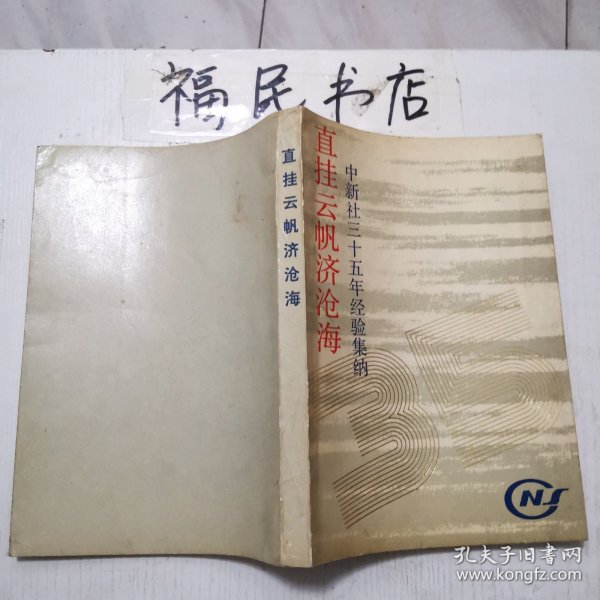 福民书店
直挂云帆济沧海
直挂云帆济沧海
中新社三十五年经验集纳
35
CNS
孔夫子旧书网
www.kongfz.com